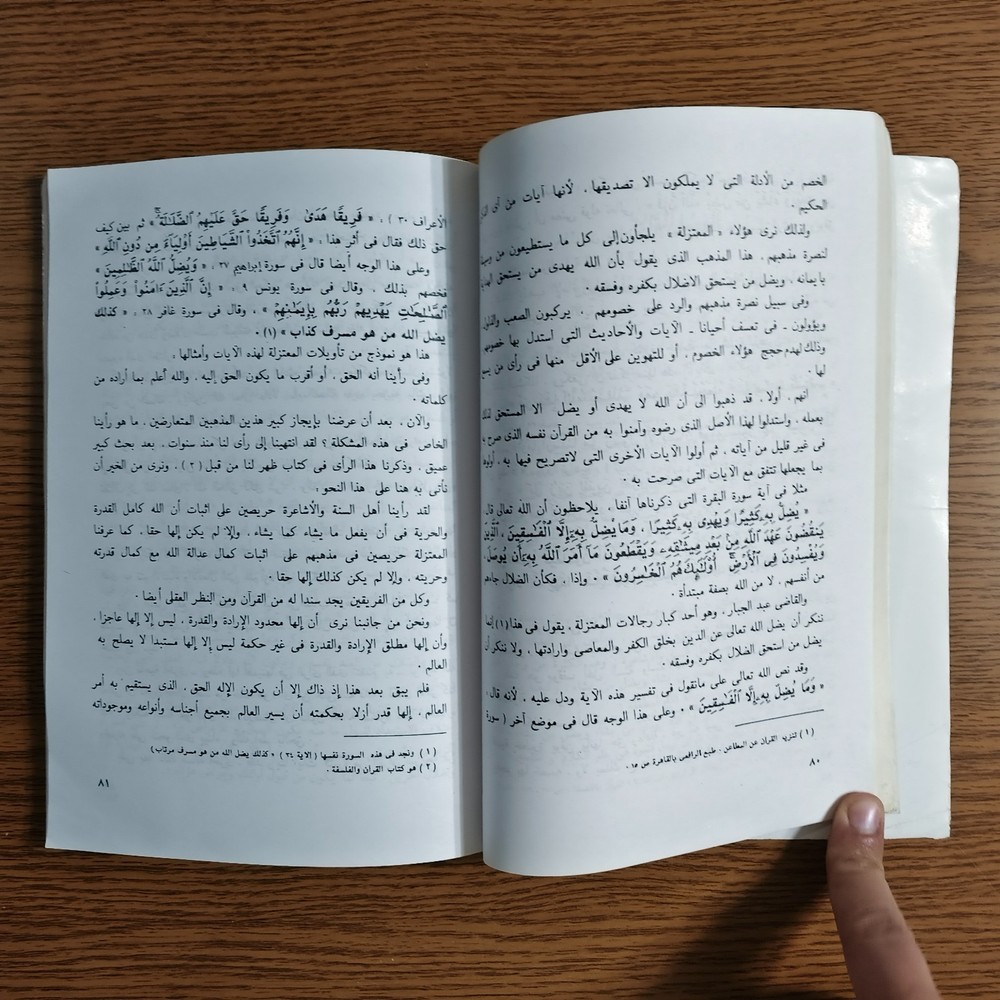 الخصم من الأدلة التى لا يملكون الا تصديقها ، لأنها آيات من آى
الحكيم ٠
ولذلك نرى هؤلاء « المعتزلة » يلجأون إلى كل ما يستطيعون من
لنصرة مذهبهم ، هذا المذهب الذى يقول بأن الله يهدى من يستحق
بايمانه ، ويضل من يستحق الاضلال بكفره وفسقه ٠
وفى سبيل نصرة مذهبهم والرد على خصومهم ، يركبون الصعب
ويؤولون ـ فى تعسف أحيانا ـ الآيات والأحاديث التى استدل بها
وذلك لهدم حجج هؤلاء الخصوم ، أو للتهوين على الأقل منها فى رأى من
لها ٠
انهم ، أولا ، قد ذهبوا الى أن الله لا يهدى أو يضل الا المستحق
بعمله ، واستدلوا لهذا الأصل الذى رضوه وآمنوا به من القرآن نفسه الذى صرح
فى غير قليل من آياته ، ثم أولوا الآيات الأخرى التى لا تصريح فيها به ،
بما يجعلها تتفق مع الآيات التى صرحت به ٠
مثلا فى آية سورة البقرة التى ذكرناها آنفا ، يلاحظون أن الله تعالى قال
« يُضِلُّ بِهِ كَثِيرًا وَيَهْدِى بِهِ كَثِيرًا ، وَمَا يُضِلُّ بِهِ إِلَّا ٱلْفَـٰسِقِينَ ، ٱلَّذِينَ
يَنقُضُونَ عَهْدَ ٱللَّهِ مِنْ بَعْدِ مِيثَـٰقِهِ وَيَقْطَعُونَ مَا أَمَرَ ٱللَّهُ بِهِ أَن يُوصَلَ ،
وَيُفْسِدُونَ فِى ٱلْأَرْضِ أُوْلَـٰئِكَ هُمُ ٱلْخَـٰسِرُونَ » ٠ وإذا ، فكأن الضلال جاءهم
من أنفسهم ، لا من الله بصفة مبتدأة ٠
والقاضى عبد الجبار ، وهو أحد كبار رجالات المعتزلة ، يقول فى هذا (١)
ننكر أن يضل الله تعالى عن الدين بخلق الكفر والمعاصى وارادتها ، ولا ننكر أن
يضل من استحق الضلال بكفره وفسقه ٠
وقد نص الله تعالى على مانقول فى تفسير هذه الآية ودل عليه ، لأنه قال
« وَمَا يُضِلُّ بِهِ إِلَّا ٱلْفَـٰسِقِينَ » ٠ وعلى هذا الوجه قال فى موضع آخر ( سورة
(١) تنزيه القرآن عن المطاعن ، طبع الرافعى بالقاهرة ص ١٥ ٠
٨٠
الأعراف ٣٠ ) ، « فَرِيقًا هَدَىٰ وَفَرِيقًا حَقَّ عَلَيْهِمُ ٱلضَّلَـٰلَةُ » ثم بين كيف
حق ذلك فقال فى أثر هذا ، « إِنَّهُمُ ٱتَّخَذُوا۟ ٱلشَّيَاطِينَ أَوْلِيَآءَ مِن دُونِ ٱللَّهِ »
وعلى هذا الوجه أيضا قال فى سورة إبراهيم ٢٧ ، « وَيُضِلُّ ٱللَّهُ ٱلظَّـٰلِمِينَ »
فخصهم بذلك ، وقال فى سورة يونس ٩ ، « إِنَّ ٱلَّذِينَ ءَامَنُوا۟ وَعَمِلُوا۟
ٱلصَّـٰلِحَـٰتِ يَهْدِيهِمْ رَبُّهُم بِإِيمَـٰنِهِمْ » ، وقال فى سورة غافر ٢٨ ، « كذلك
يضل الله من هو مسرف كذاب » (١) ٠
هذا هو نموذج من تأويلات المعتزلة لهذه الآيات وأمثالها ،
وفى رأينا أنه الحق ، أو أقرب ما يكون الحق إليه ، والله أعلم بما أراده من
كلماته ٠
والآن ، بعد أن عرضنا بإيجاز كبير هذين المذهبين المتعارضين ، ما هو رأينا
الخاص فى هذه المشكلة ؟ لقد انتهينا إلى رأى لنا منذ سنوات ، بعد بحث كبير
عميق ، وذكرنا هذا الرأى فى كتاب ظهر لنا من قبل (٢) ، ونرى من الخير أن
نأتى به هنا على هذا النحو :
لقد رأينا أهل السنة والأشاعرة حريصين على اثبات أن الله كامل القدرة
والحرية فى أن يفعل ما يشاء كما يشاء ، وإلا لم يكن إلها حقا ، كما عرفنا
المعتزلة حريصين فى مذهبهم على اثبات كمال عدالة الله مع كمال قدرته
وحريته ، وإلا لم يكن كذلك إلها حقا ٠
وكل من الفريقين يجد سندا له من القرآن ومن النظر العقلى أيضا ٠
ونحن من جانبنا نرى أن إلها محدود الإرادة والقدرة ، ليس إلا إلها عاجزا ،
وأن إلها مطلق الإرادة والقدرة فى غير حكمة ليس إلا إلها مستبدا لا يصلح به
العالم ٠
فلم يبق بعد هذا إذ ذاك إلا أن يكون الإله الحق ، الذى يستقيم به أمر
العالم ، إلها قدر أزلا بحكمته أن يسير العالم بجميع أجناسه وأنواعه وموجوداته
(١) ونجد فى هذه السورة نفسها ( الآية ٣٤ ) « كذلك يضل الله من هو مسرف مرتاب )
(٢) هو كتاب القرآن والفلسفة ٠
٨١